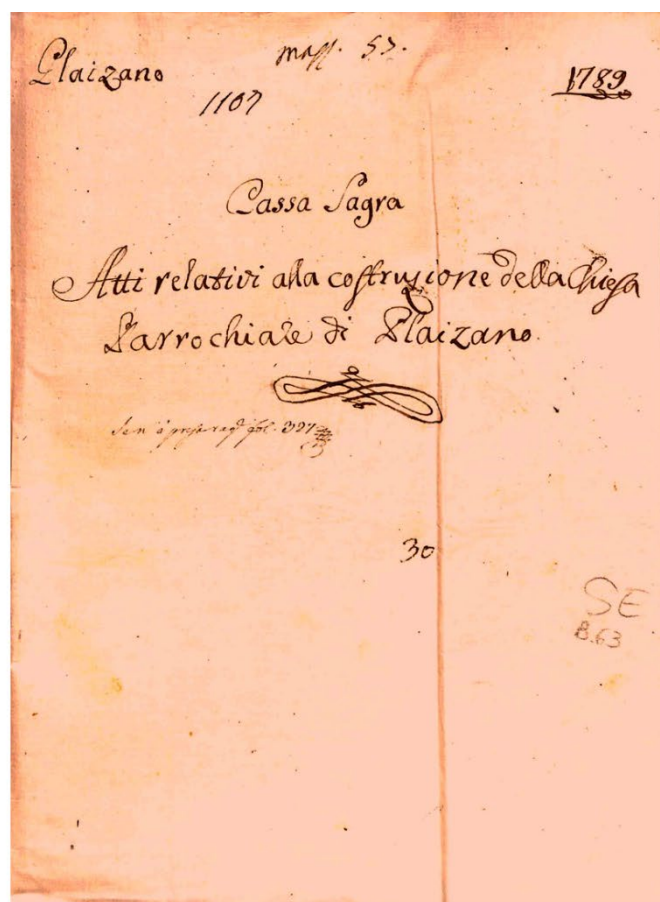 Plaizano
1789
1107
Cassa Sagra
Atti relativi alla costruzione della Chiesa
Parrochiale di Plaizano
fol. 397
30
SE
B.63